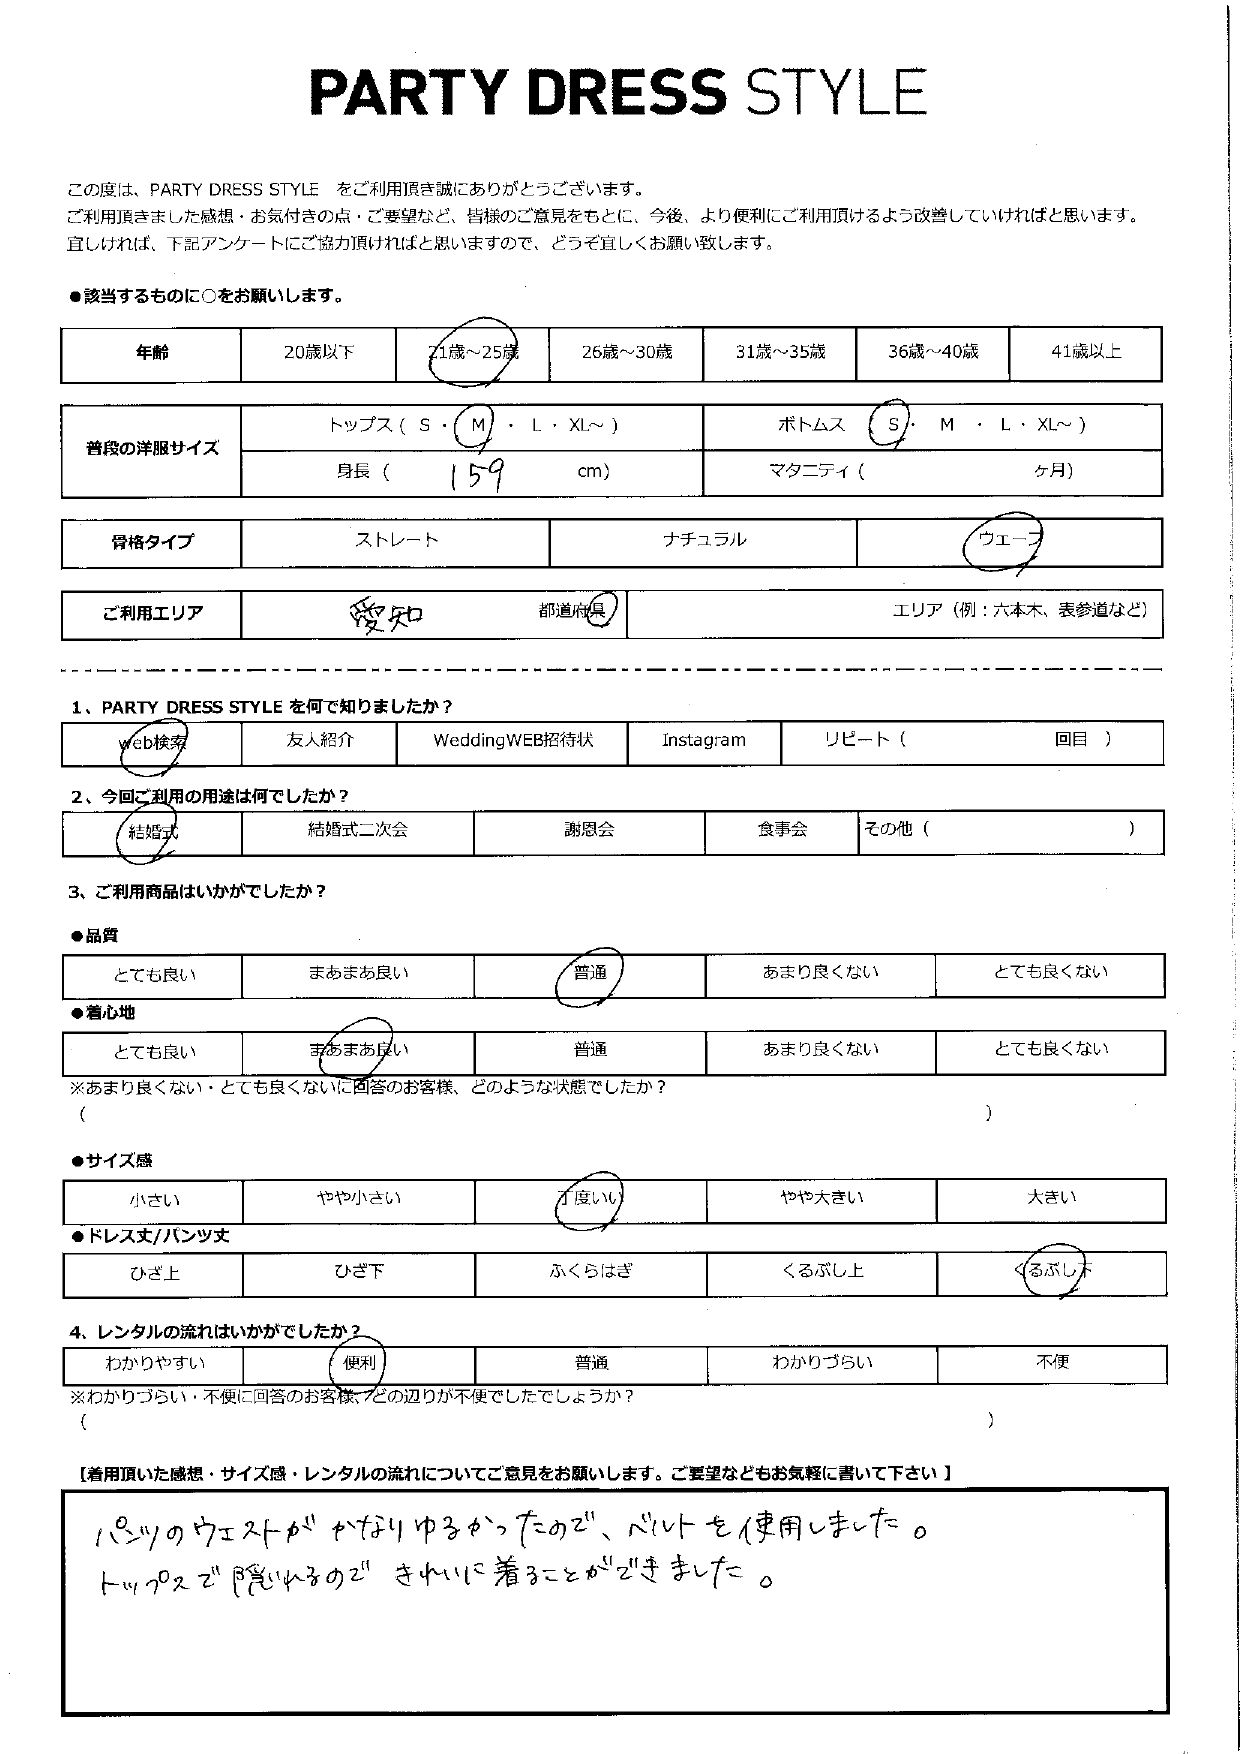 PARTY DRESS STYLE
この度は、PARTY DRESS STYLE をご利用頂き誠にありがとうございます。
ご利用頂きました感想・お気付きの点・ご要望など、皆様のご意見をもとに、今後、より便利にご利用頂けるよう改善していければと思います。
宜しければ、下記アンケートにご協力頂ければと思いますので、どうぞ宜しくお願い致します。
●該当するものに○をお願いします。
年齢 20歳以下 21歳～25歳 26歳～30歳 31歳～35歳 36歳～40歳 41歳以上
普段の洋服サイズ トップス ( S ・ M ・ L ・ XL～ ) ボトムス ( S ・ M ・ L ・ XL～ )
身長 ( 159 cm) マタニティ ( ヶ月)
骨格タイプ ストレート ナチュラル ウェーブ
ご利用エリア 愛知 都道府県 エリア（例：六本木、表参道など）
1、PARTY DRESS STYLE を何で知りましたか？
web検索 友人紹介 WeddingWEB招待状 Instagram リピート ( 回目 )
2、今回ご利用の用途は何でしたか？
結婚式 結婚式二次会 謝恩会 食事会 その他 ( )
3、ご利用商品はいかがでしたか？
●品質
とても良い まあまあ良い 普通 あまり良くない とても良くない
●着心地
とても良い まあまあ良い 普通 あまり良くない とても良くない
※あまり良くない・とても良くないに回答のお客様、どのような状態でしたか？
( )
●サイズ感
小さい やや小さい 丁度いい やや大きい 大きい
●ドレス丈/パンツ丈
ひざ上 ひざ下 ふくらはぎ くるぶし上 くるぶし下
4、レンタルの流れはいかがでしたか？
わかりやすい 便利 普通 わかりづらい 不便
※わかりづらい・不便に回答のお客様、どの辺りが不便でしたでしょうか？
( )
【着用頂いた感想・サイズ感・レンタルの流れについてご意見をお願いします。ご要望などもお気軽に書いて下さい 】
パンツのウエストが かなりゆるかったので、ベルトを使用しました。
トップスで隠れるので きれいに着ることができました。